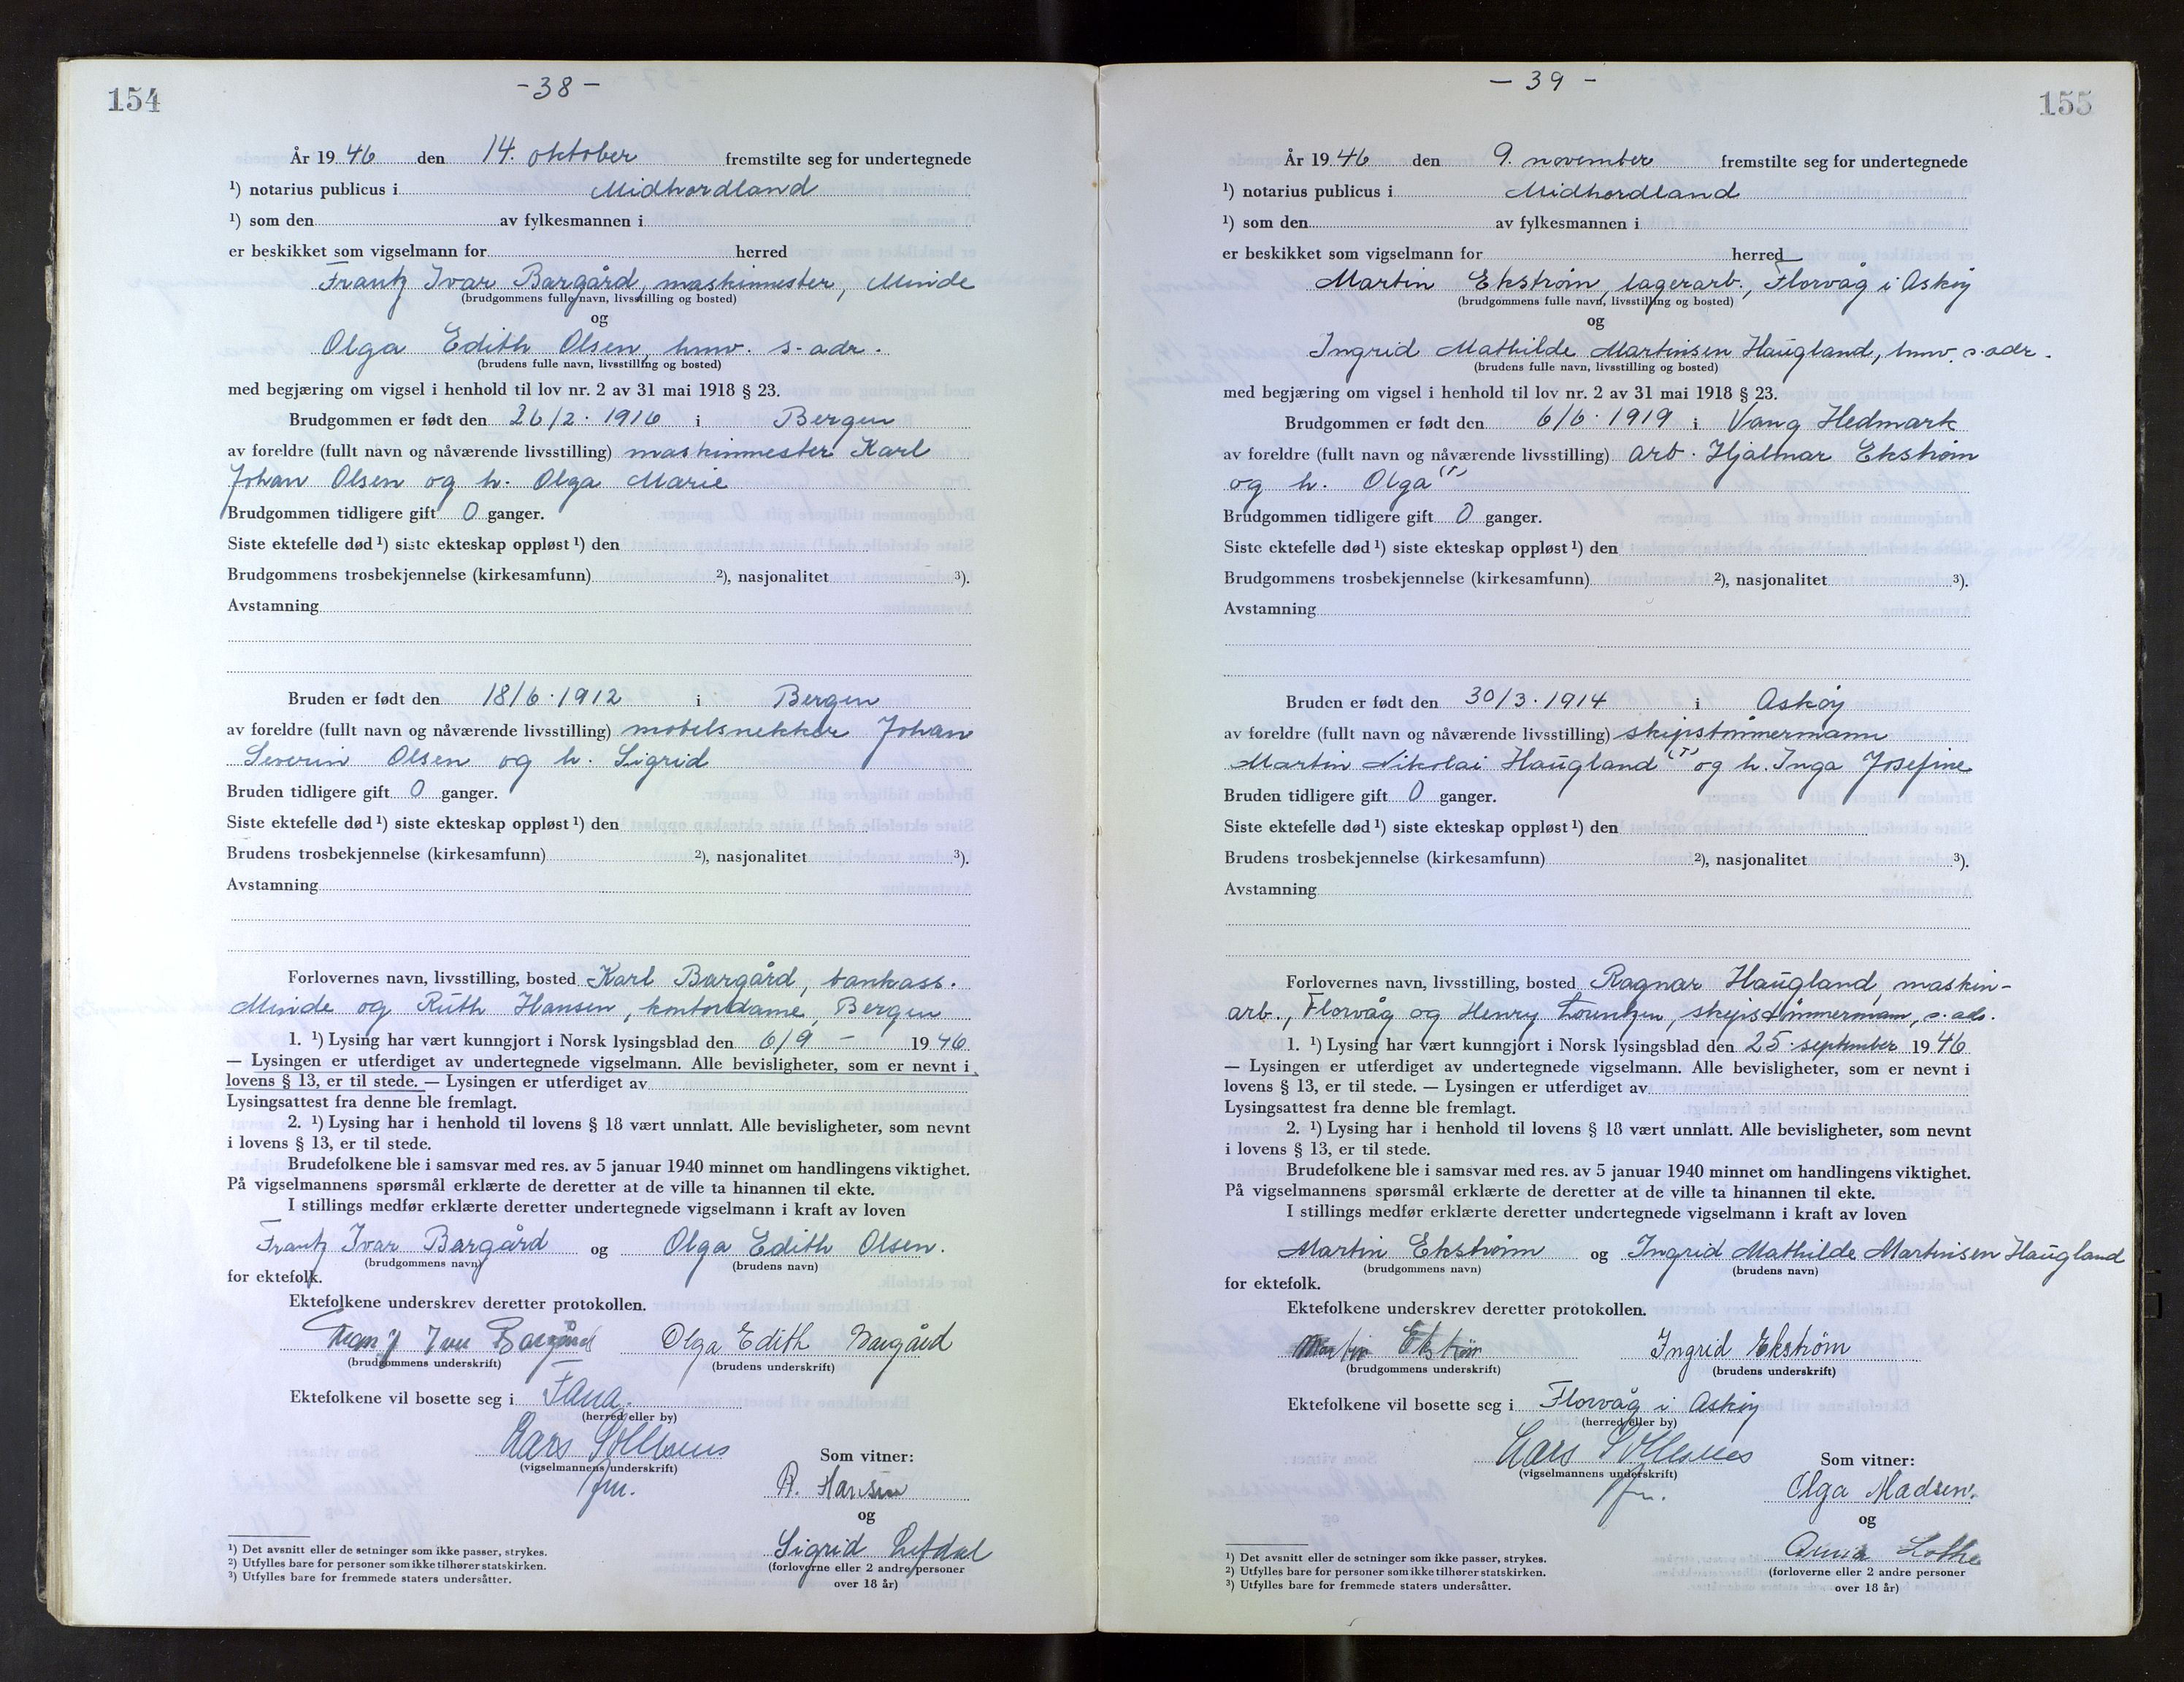 154
-38-
År 1946 den 14. oktober fremstilte seg for undertegnede
¹) notarius publicus i Midhordland
¹) som den av fylkesmannen i
er beskikket som vigselmann for herred
Frantz Ivar Bargård, maskinmester, Minde
(brudgommens fulle navn, livsstilling og bosted)
og
Olga Edith Olsen, hmv. s. adr.
(brudens fulle navn, livsstilling og bosted)
med begjæring om vigsel i henhold til lov nr. 2 av 31 mai 1918 § 23.
Brudgommen er født den 26/2. 1916 i Bergen
av foreldre (fullt navn og nåværende livsstilling) maskinmester Karl
Johan Olsen og h. Olga Marie
Brudgommen tidligere gift 0 ganger.
Siste ektefelle død ¹) siste ekteskap oppløst ¹) den
Brudgommens trosbekjennelse (kirkesamfunn) ²), nasjonalitet ³).
Avstamning
Bruden er født den 18/6. 1912 i Bergen
av foreldre (fullt navn og nåværende livsstilling) møbelsnekker Johan
Severin Olsen og h. Sigrid
Bruden tidligere gift 0 ganger.
Siste ektefelle død ¹) siste ekteskap oppløst ¹) den
Brudens trosbekjennelse (kirkesamfunn) ²), nasjonalitet ³).
Avstamning
Forlovernes navn, livsstilling, bosted Karl Bargård, bankass.
Minde og Ruth Hansen, kontordame, Bergen
1. ¹) Lysing har vært kunngjort i Norsk lysingsblad den 6/9 - 1946
— Lysingen er utferdiget av undertegnede vigselmann. Alle bevisligheter, som er nevnt i
lovens § 13, er til stede. — Lysingen er utferdiget av
Lysingsattest fra denne ble fremlagt.
2. ¹) Lysing har i henhold til lovens § 18 vært unnlatt. Alle bevisligheter, som nevnt
i lovens § 13, er til stede.
Brudefolkene ble i samsvar med res. av 5 januar 1940 minnet om handlingens viktighet.
På vigselmannens spørsmål erklærte de deretter at de ville ta hinannen til ekte.
I stillings medfør erklærte deretter undertegnede vigselmann i kraft av loven
Frantz Ivar Bargård og Olga Edith Olsen.
(brudgommens navn) (brudens navn)
for ektefolk.
Ektefolkene underskrev deretter protokollen.
Frantz Ivar Bargård Olga Edith Bargård
(brudgommens underskrift) (brudens underskrift)
Ektefolkene vil bosette seg i Fana.
(herred eller by)
Lars Sollesnes
(vigselmannens underskrift)
fm.
Som vitner:
R. Hansen
og
Sigrid Lefdal
(forloverne eller 2 andre personer
over 18 år)
¹) Det avsnitt eller de setninger som ikke passer, strykes.
²) Utfylles bare for personer som ikke tilhører statskirken.
³) Utfylles bare for fremmede staters undersåtter.
155
- 39 -
År 1946 den 9. november fremstilte seg for undertegnede
¹) notarius publicus i Midhordland
¹) som den av fylkesmannen i
er beskikket som vigselmann for herred
Martin Ekstrøm, lagerarb., Florvåg i Askøy
(brudgommens fulle navn, livsstilling og bosted)
og
Ingrid Mathilde Martinsen Haugland, hmv. s. adr.
(brudens fulle navn, livsstilling og bosted)
med begjæring om vigsel i henhold til lov nr. 2 av 31 mai 1918 § 23.
Brudgommen er født den 6/6. 1919 i Vang Hedmark
av foreldre (fullt navn og nåværende livsstilling) arb. Hjalmar Ekstrøm
og h. Olga (†)
Brudgommen tidligere gift 0 ganger.
Siste ektefelle død ¹) siste ekteskap oppløst ¹) den
Brudgommens trosbekjennelse (kirkesamfunn) ²), nasjonalitet ³).
Avstamning
Bruden er født den 30/3. 1914 i Askøy
av foreldre (fullt navn og nåværende livsstilling) skipstømmermann
Martin Nikolai Haugland (†) og h. Inga Josefine
Bruden tidligere gift 0 ganger.
Siste ektefelle død ¹) siste ekteskap oppløst ¹) den
Brudens trosbekjennelse (kirkesamfunn) ²), nasjonalitet ³).
Avstamning
Forlovernes navn, livsstilling, bosted Ragnar Haugland, maskin-
arb., Florvåg og Henry Lorentzen, skipstømmermann, s. adr.
1. ¹) Lysing har vært kunngjort i Norsk lysingsblad den 25. september 1946
— Lysingen er utferdiget av undertegnede vigselmann. Alle bevisligheter, som er nevnt i
lovens § 13, er til stede. — Lysingen er utferdiget av
Lysingsattest fra denne ble fremlagt.
2. ¹) Lysing har i henhold til lovens § 18 vært unnlatt. Alle bevisligheter, som nevnt
i lovens § 13, er til stede.
Brudefolkene ble i samsvar med res. av 5 januar 1940 minnet om handlingens viktighet.
På vigselmannens spørsmål erklærte de deretter at de ville ta hinannen til ekte.
I stillings medfør erklærte deretter undertegnede vigselmann i kraft av loven
Martin Ekstrøm og Ingrid Mathilde Martinsen Haugland
(brudgommens navn) (brudens navn)
for ektefolk.
Ektefolkene underskrev deretter protokollen.
Martin Ekstrøm Ingrid Ekstrøm
(brudgommens underskrift) (brudens underskrift)
Ektefolkene vil bosette seg i Florvåg i Askøy
(herred eller by)
Lars Sollesnes
(vigselmannens underskrift)
fm.
Som vitner:
Olga Madsen.
og
Anna Lothe
(forloverne eller 2 andre personer
over 18 år)
¹) Det avsnitt eller de setninger som ikke passer, strykes.
²) Utfylles bare for personer som ikke tilhører statskirken.
³) Utfylles bare for fremmede staters undersåtter.